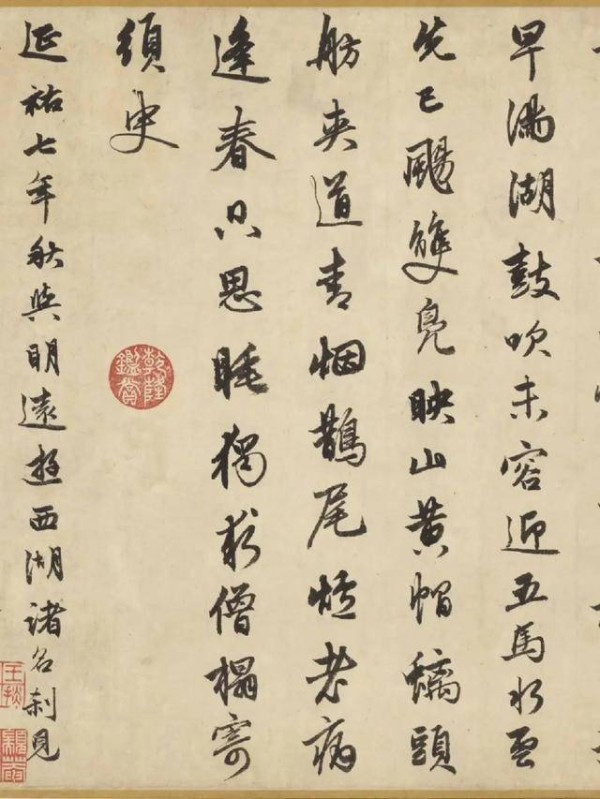 早滿湖鼓吹未容迎五馬水雲
先已颺雙鳧映山黃帽螭頭
舫夾道青烟鵲尾爐老病
逢春只思睡獨求僧榻寄
須臾
乾隆鑑賞
延祐七年秋與明遠遊西湖諸名刹見